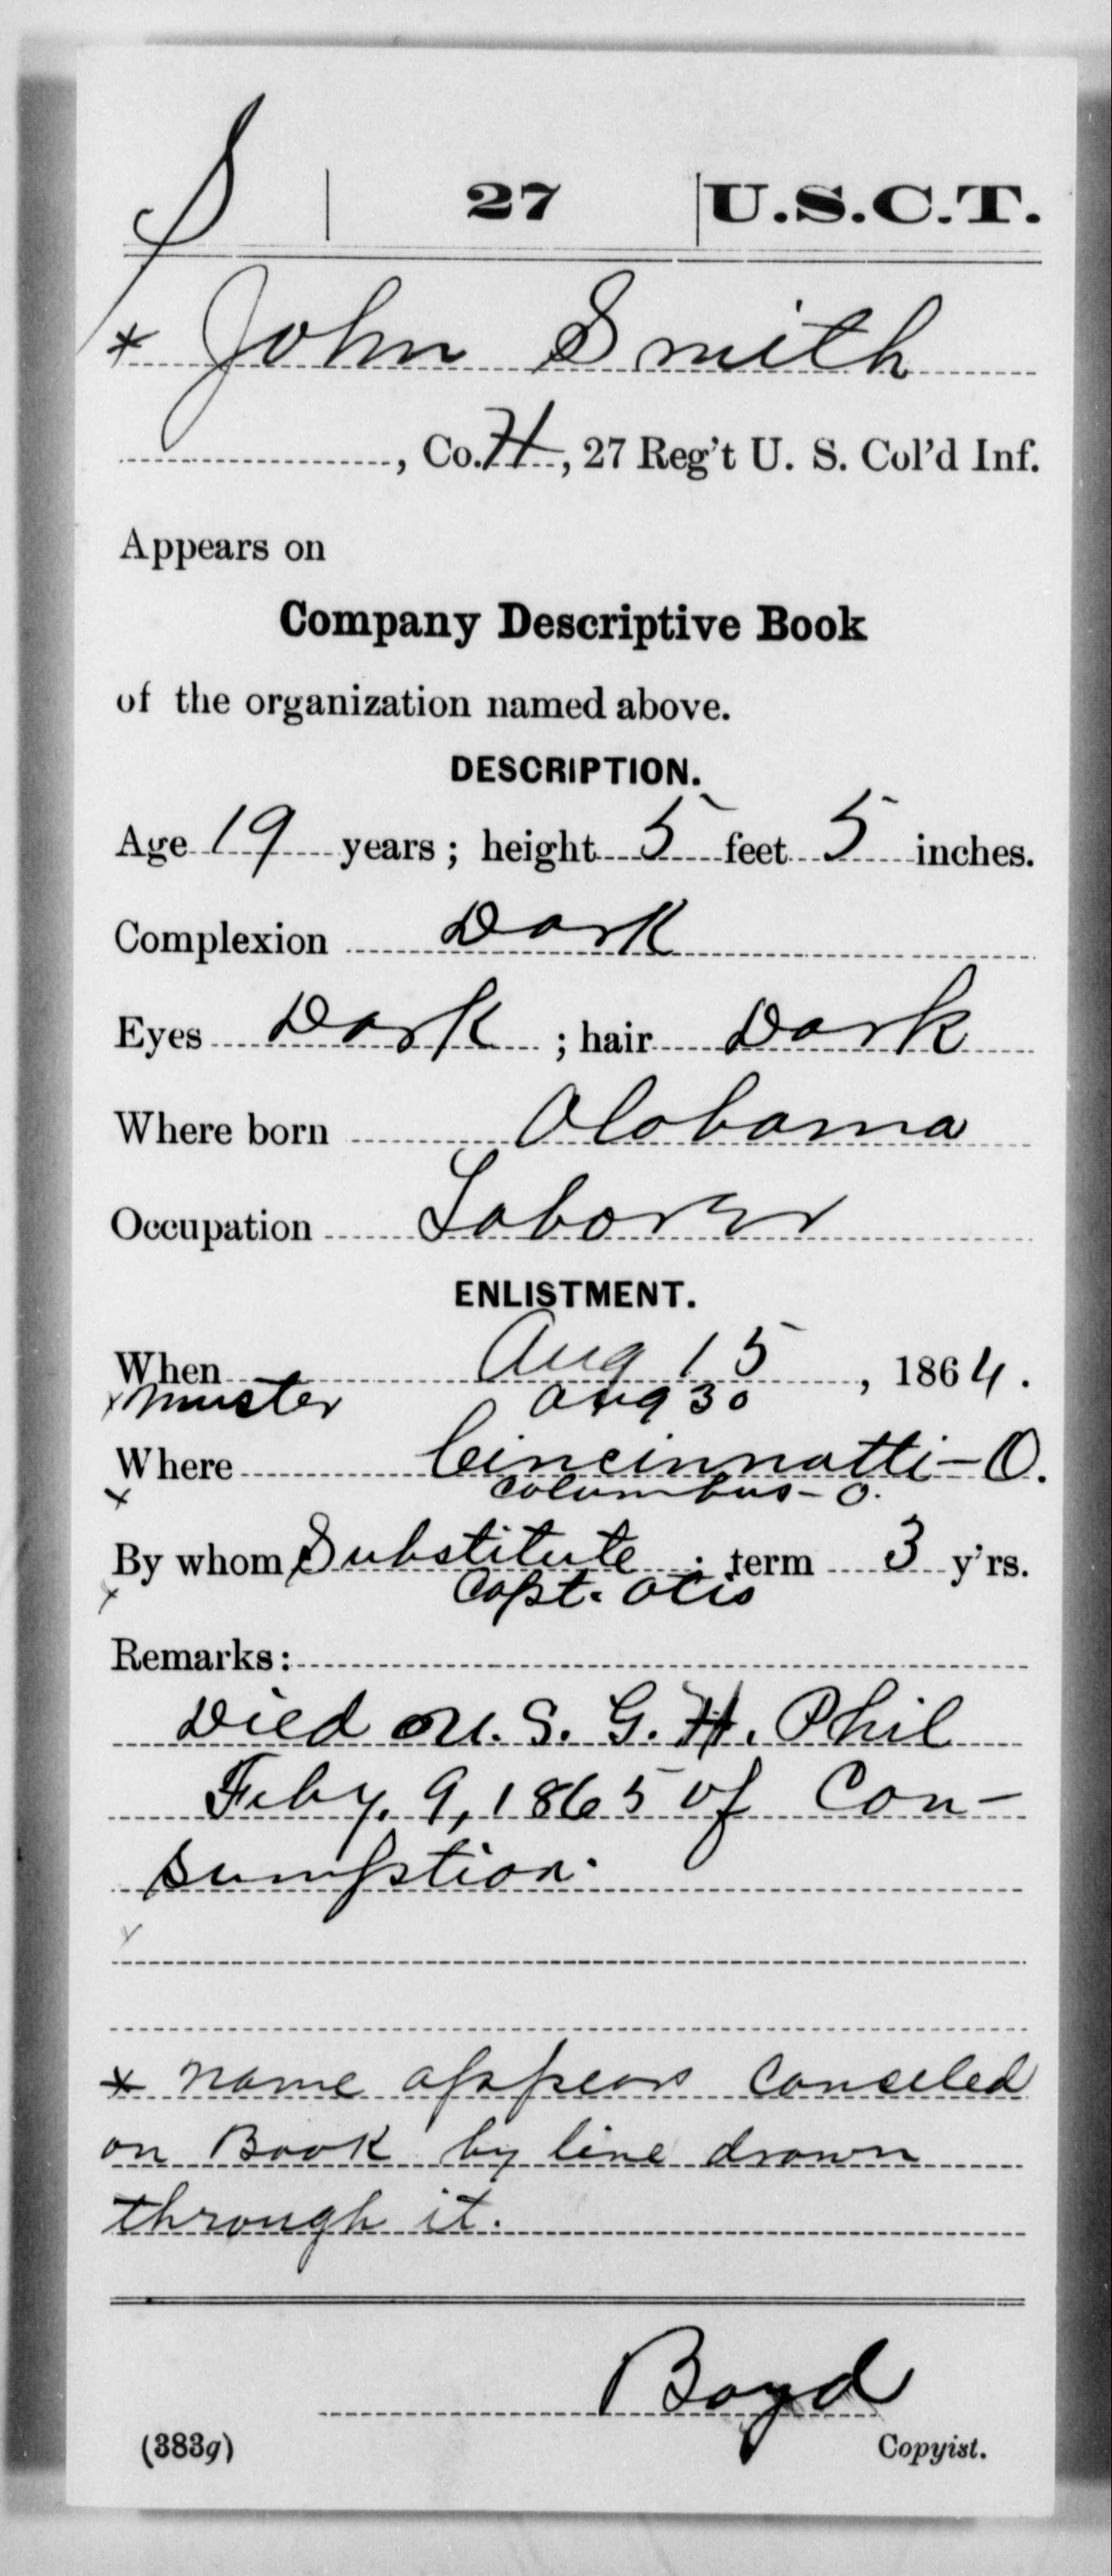 S | 27 | U.S.C.T.
* John Smith
, Co. H, 27 Reg't U. S. Col'd Inf.
Appears on
Company Descriptive Book
of the organization named above.
DESCRIPTION.
Age 19 years; height 5 feet 5 inches.
Complexion Dark
Eyes Dark; hair Dark
Where born Alabama
Occupation Laborer
ENLISTMENT.
When Aug 15, 1864.
x muster Aug 30
Where Cincinnatti - O.
x Columbus - O.
By whom Substitute; term 3 y'rs.
x Capt. Otis
Remarks:
Died U. S. G. H. Phil
Feby. 9, 1865 of Con-
sumption.
* name appears canseled
on Book by line drawn
through it.
Boyd
(383g) Copyist.